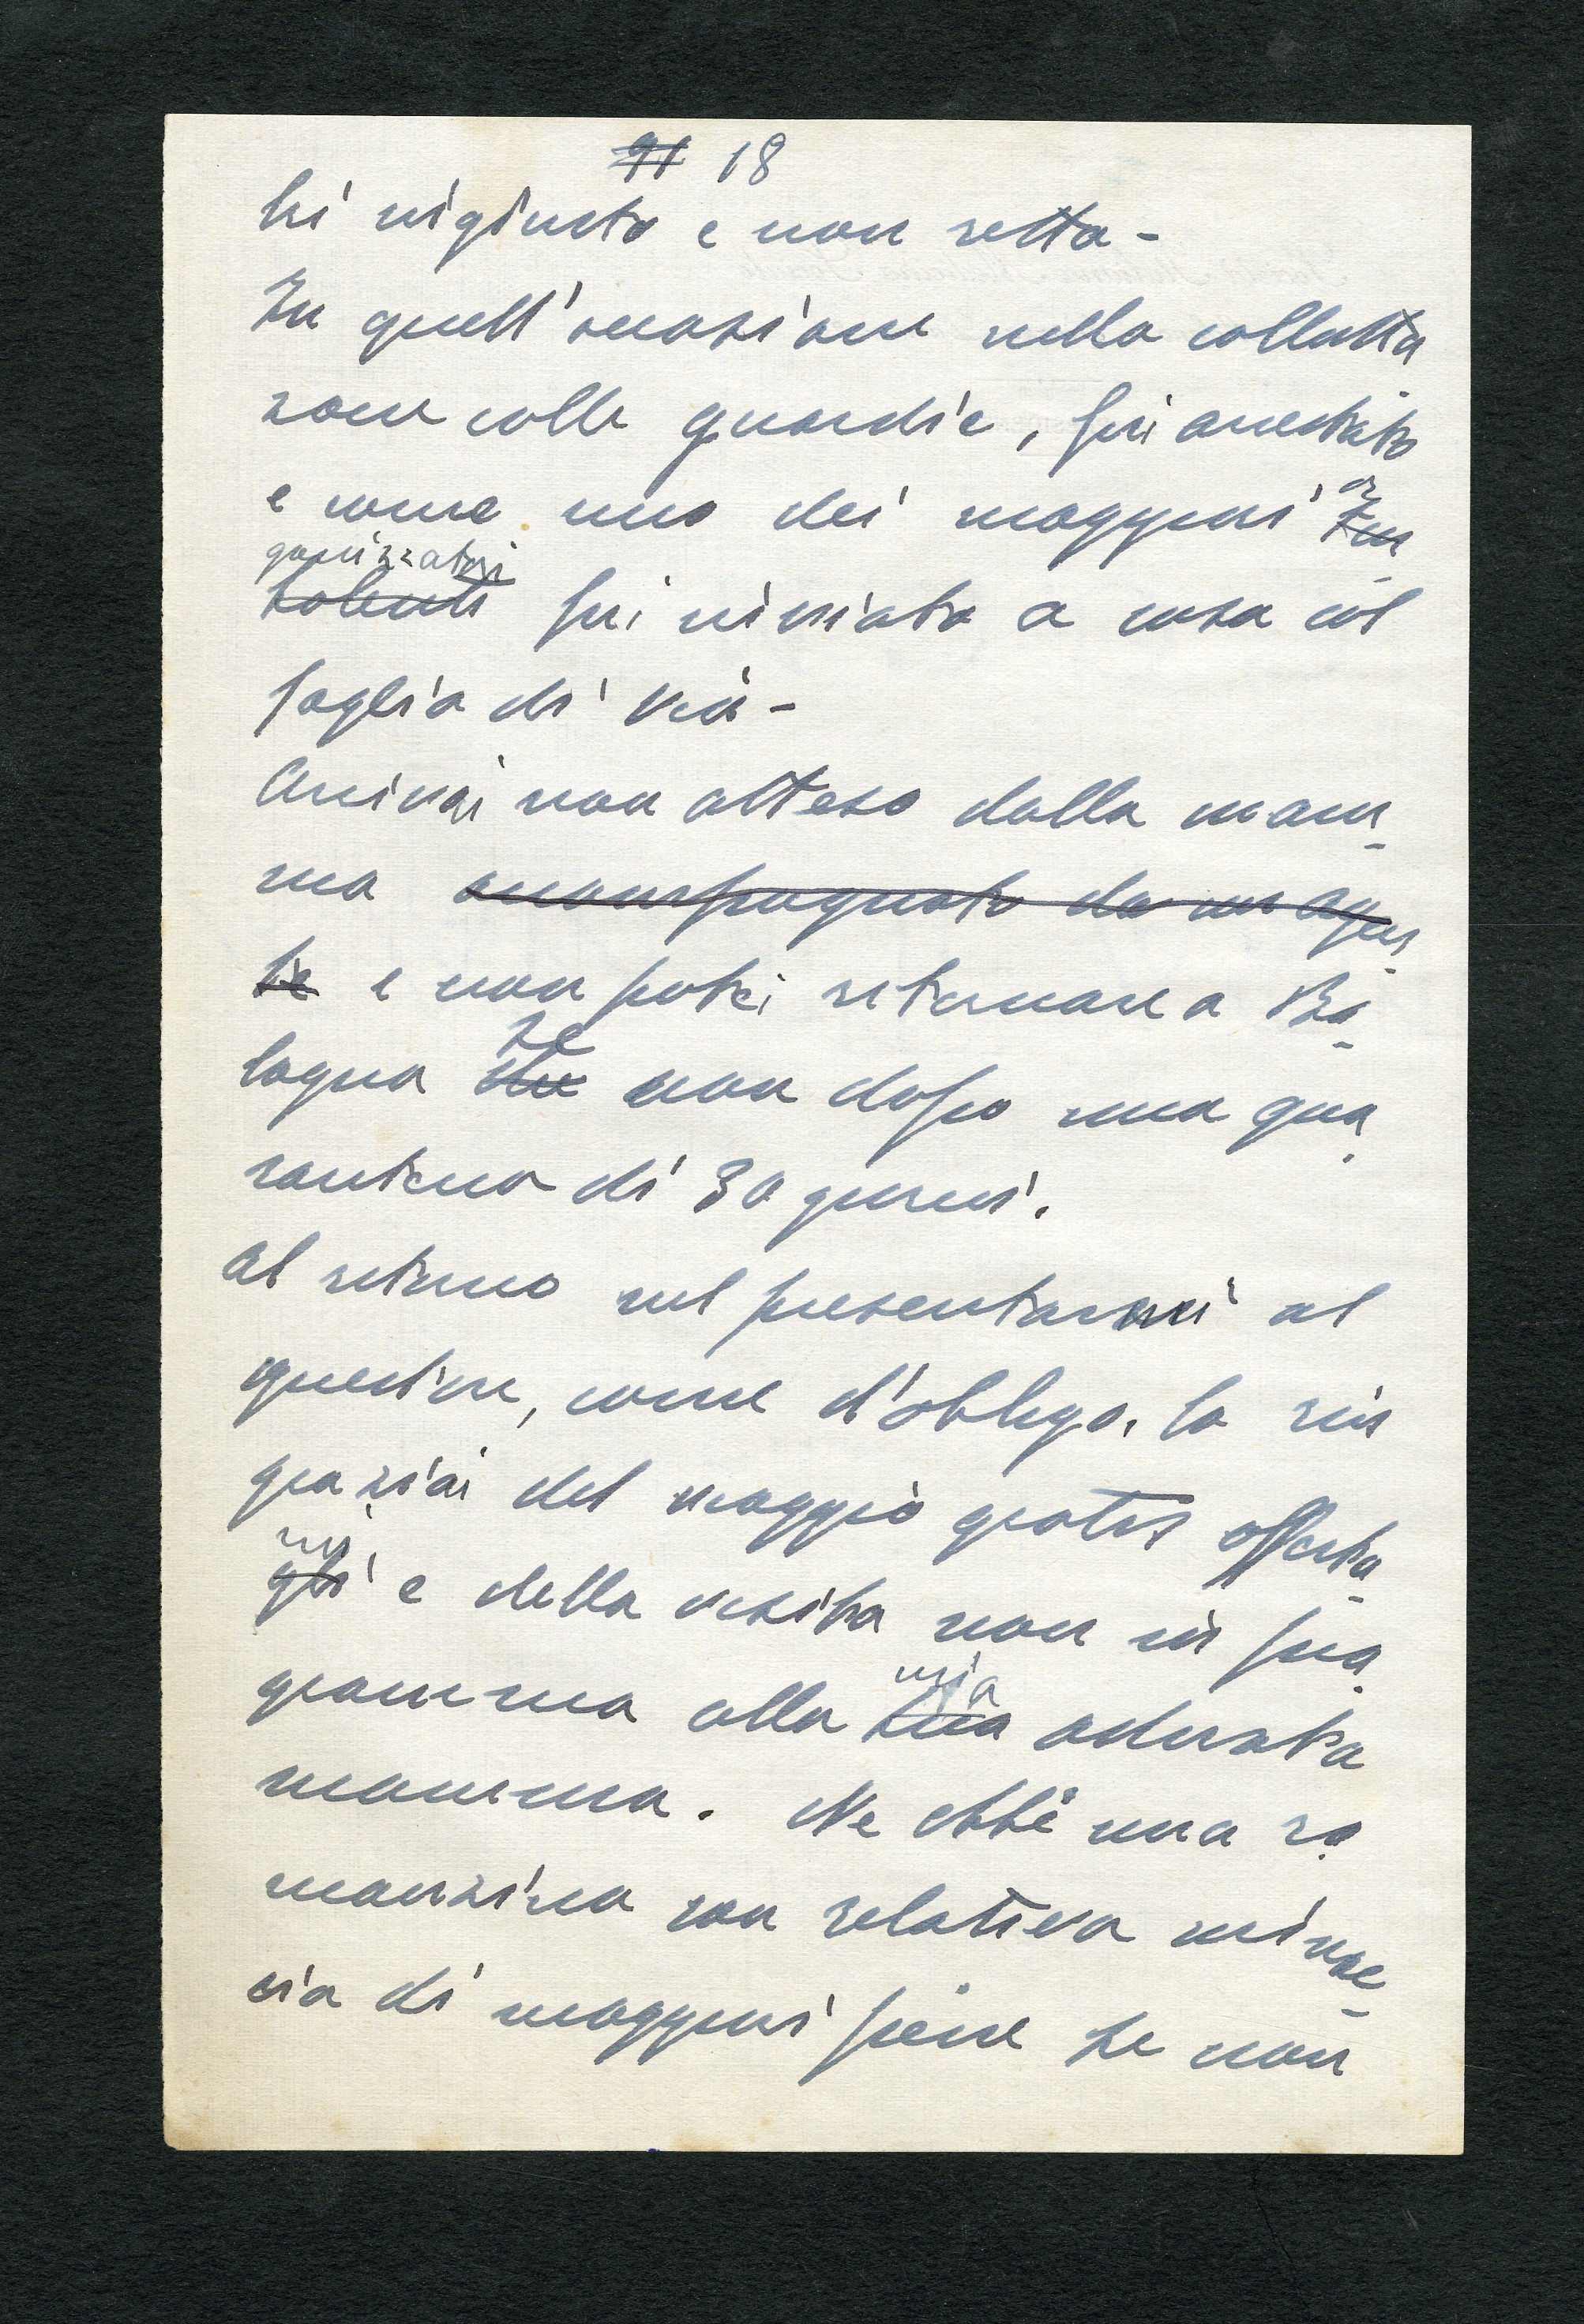 91 18
ti ingiusto e non retta -
In quell'occasione nella collutta
zione colle guardie, fui arrestato
e come uno dei maggiori or
ganizzatori fui rinviato a casa col
foglio di via -
Arrivai non atteso dalla mam-
ma accompagnato da un agen-
te e non potei ritornare a Bo-
logna che se non dopo una qua-
rantena di 30 giorni.
Al ritorno nel presentarmi al
questore, come d'obbligo, lo rin
graziai del viaggio gratis offerto-
mi e della visita non in pro-
gramma alla sua mia adorata
mamma. Ne ebbi una ro-
manzina con relativa minac-
cia di maggiori pene se non